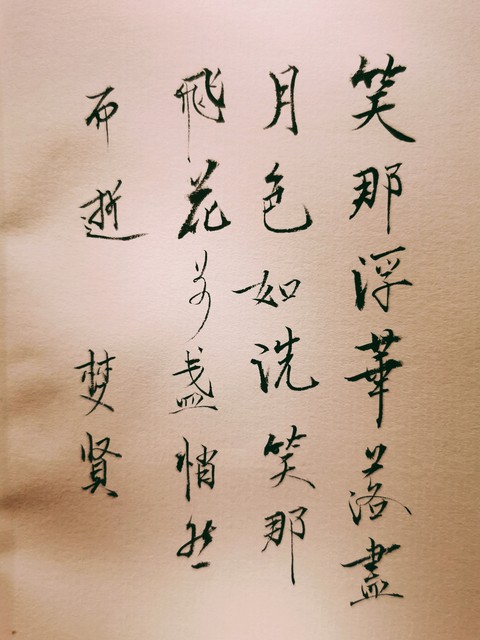 笑那浮華落盡
月色如洗笑那
飛花萬盏悄然
而逝 贤